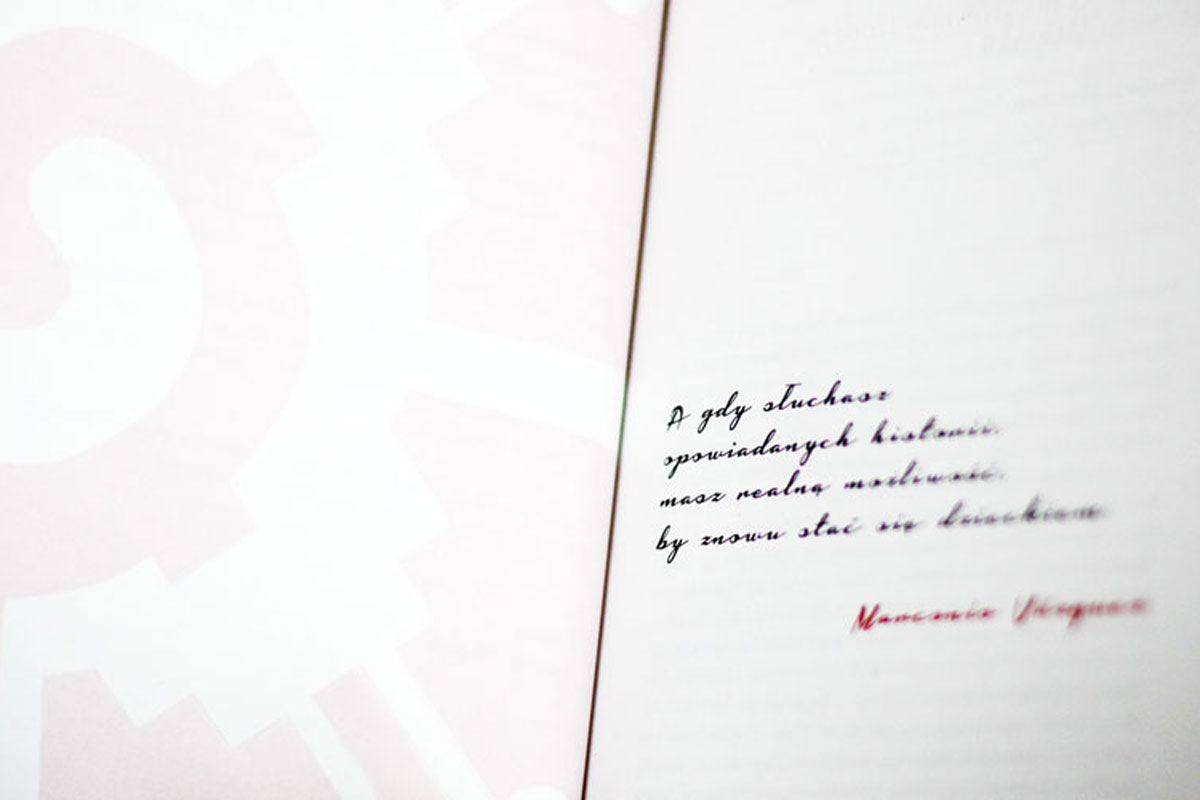 A gdy słuchasz
opowiadanych historii,
masz realną możliwość,
by znowu stać się dzieckiem.